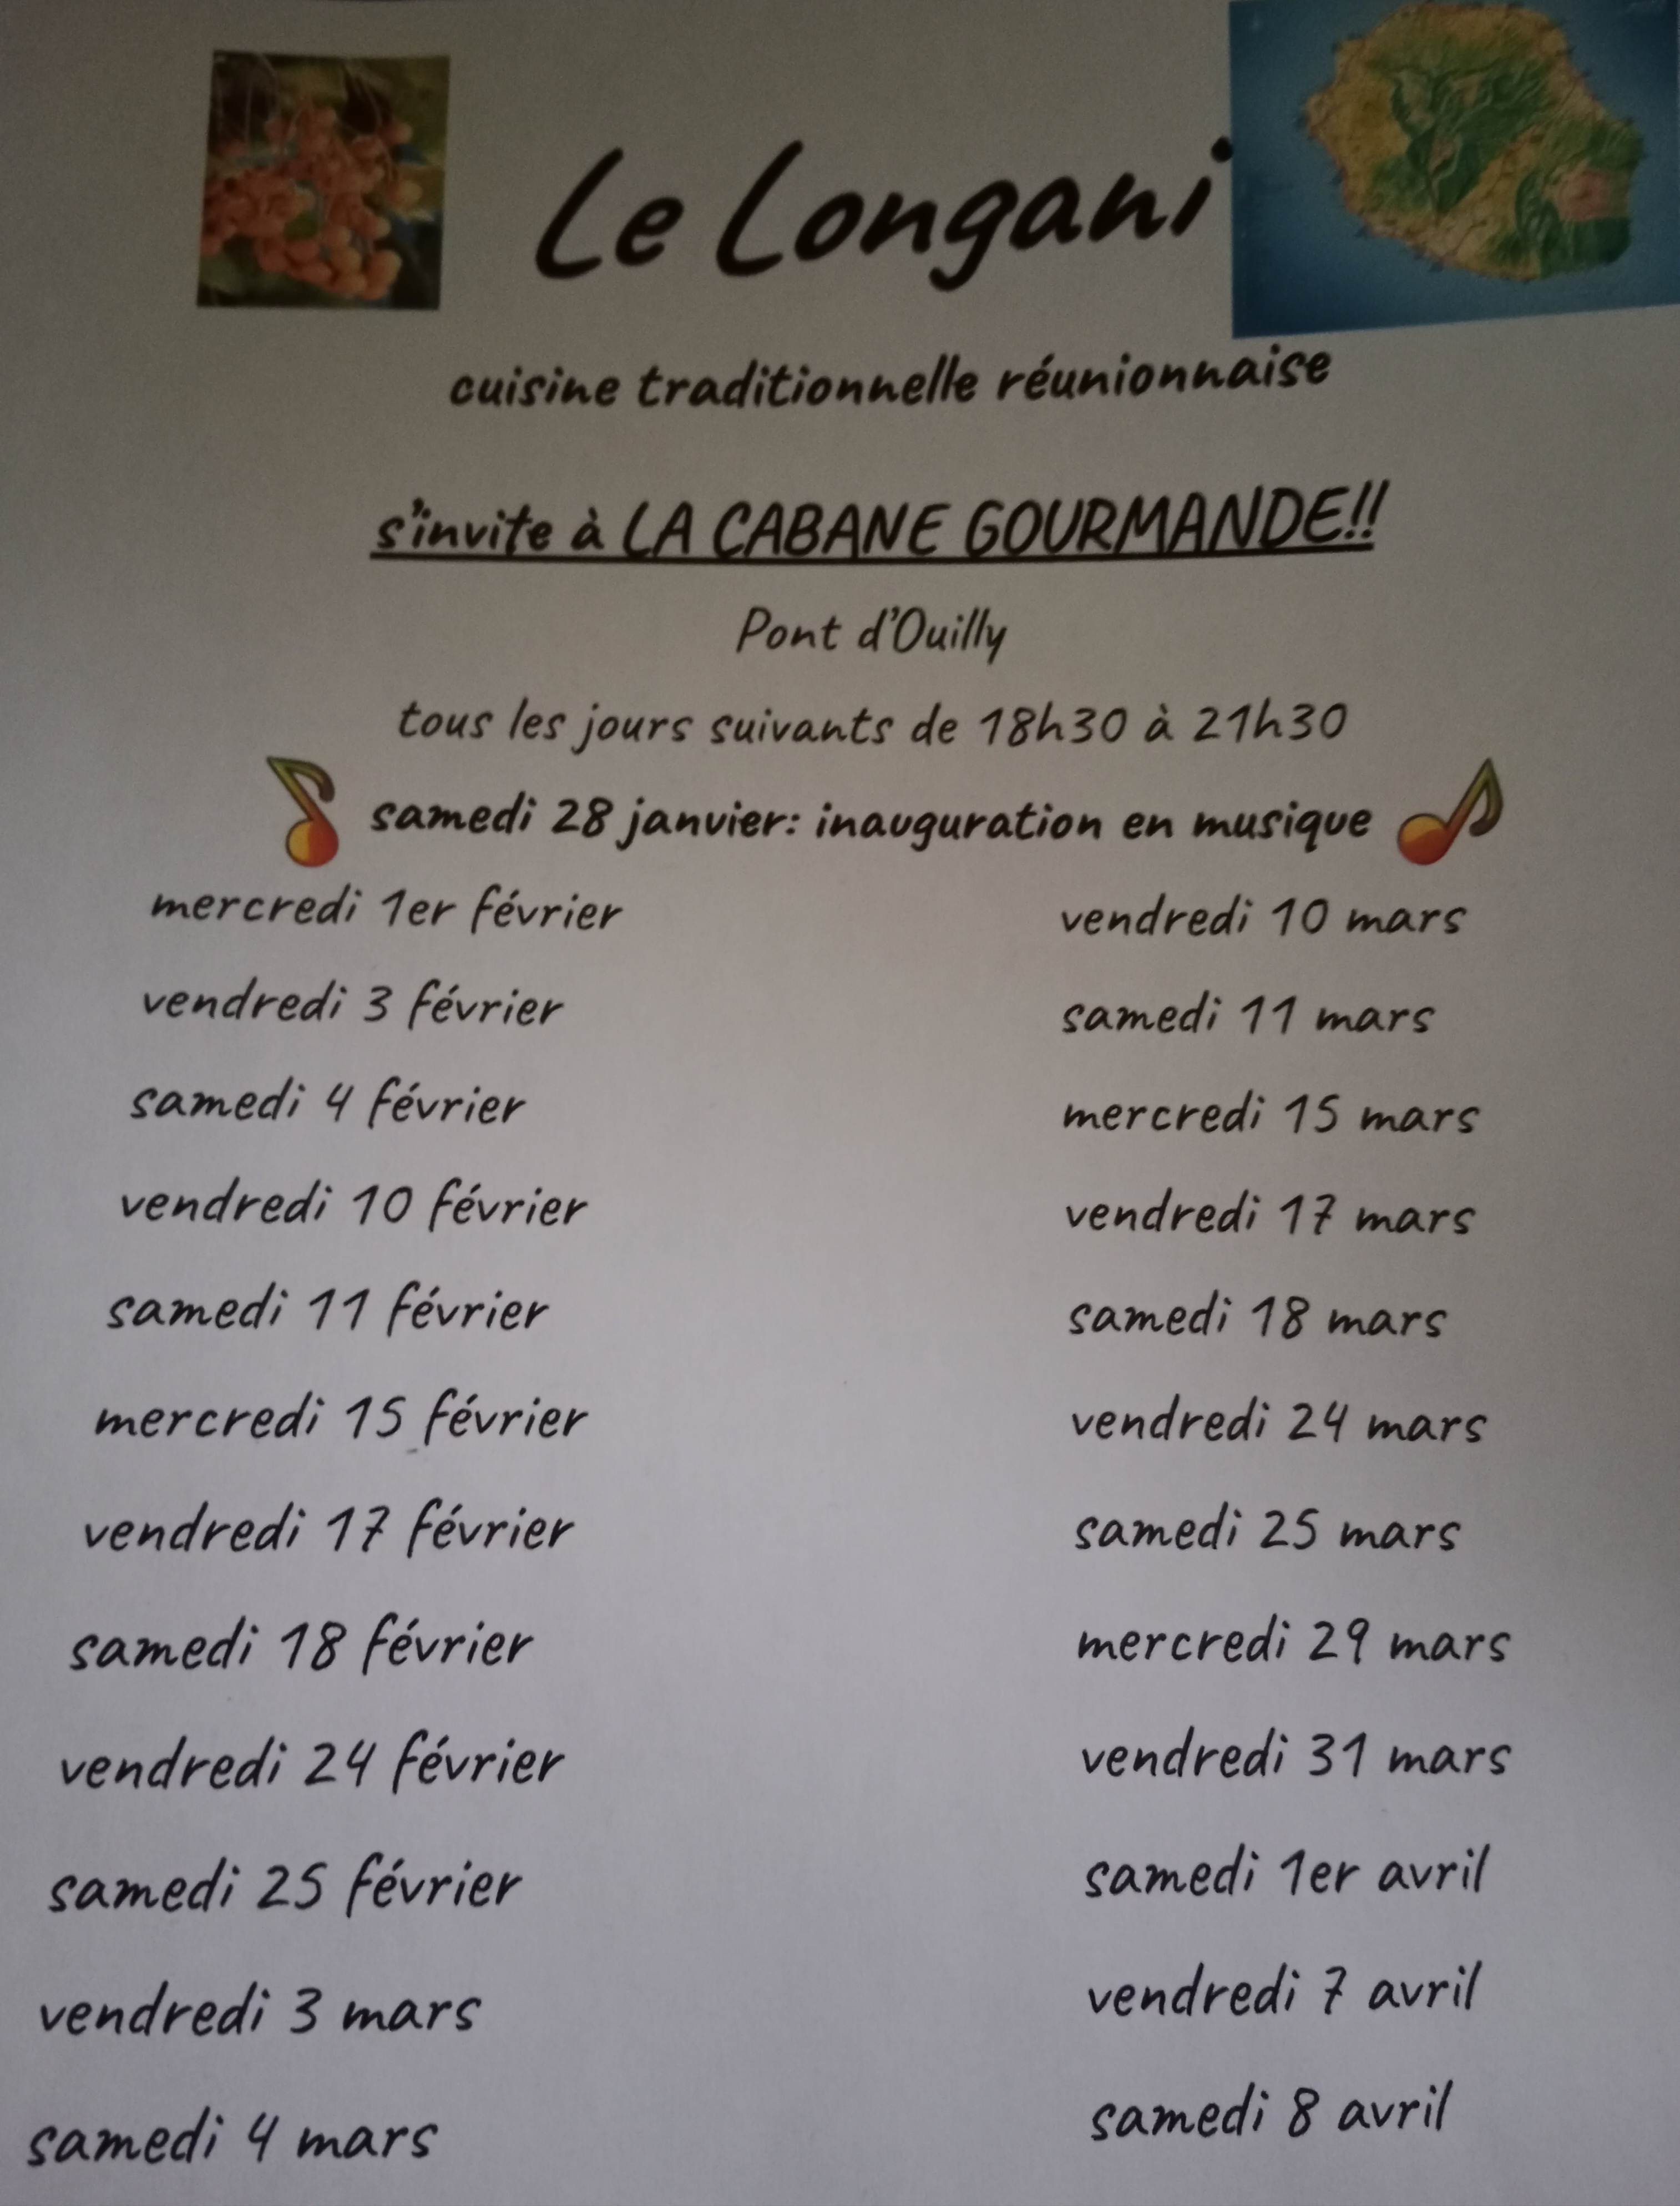 Le Longani
cuisine traditionnelle réunionnaise
s'invite à LA CABANE GOURMANDE!!
Pont d'Ouilly
tous les jours suivants de 18h30 à 21h30
samedi 28 janvier: inauguration en musique
mercredi 1er février
vendredi 3 février
samedi 4 février
vendredi 10 février
samedi 11 février
mercredi 15 février
vendredi 17 février
samedi 18 février
vendredi 24 février
samedi 25 février
vendredi 3 mars
samedi 4 mars
vendredi 10 mars
samedi 11 mars
mercredi 15 mars
vendredi 17 mars
samedi 18 mars
vendredi 24 mars
samedi 25 mars
mercredi 29 mars
vendredi 31 mars
samedi 1er avril
vendredi 7 avril
samedi 8 avril